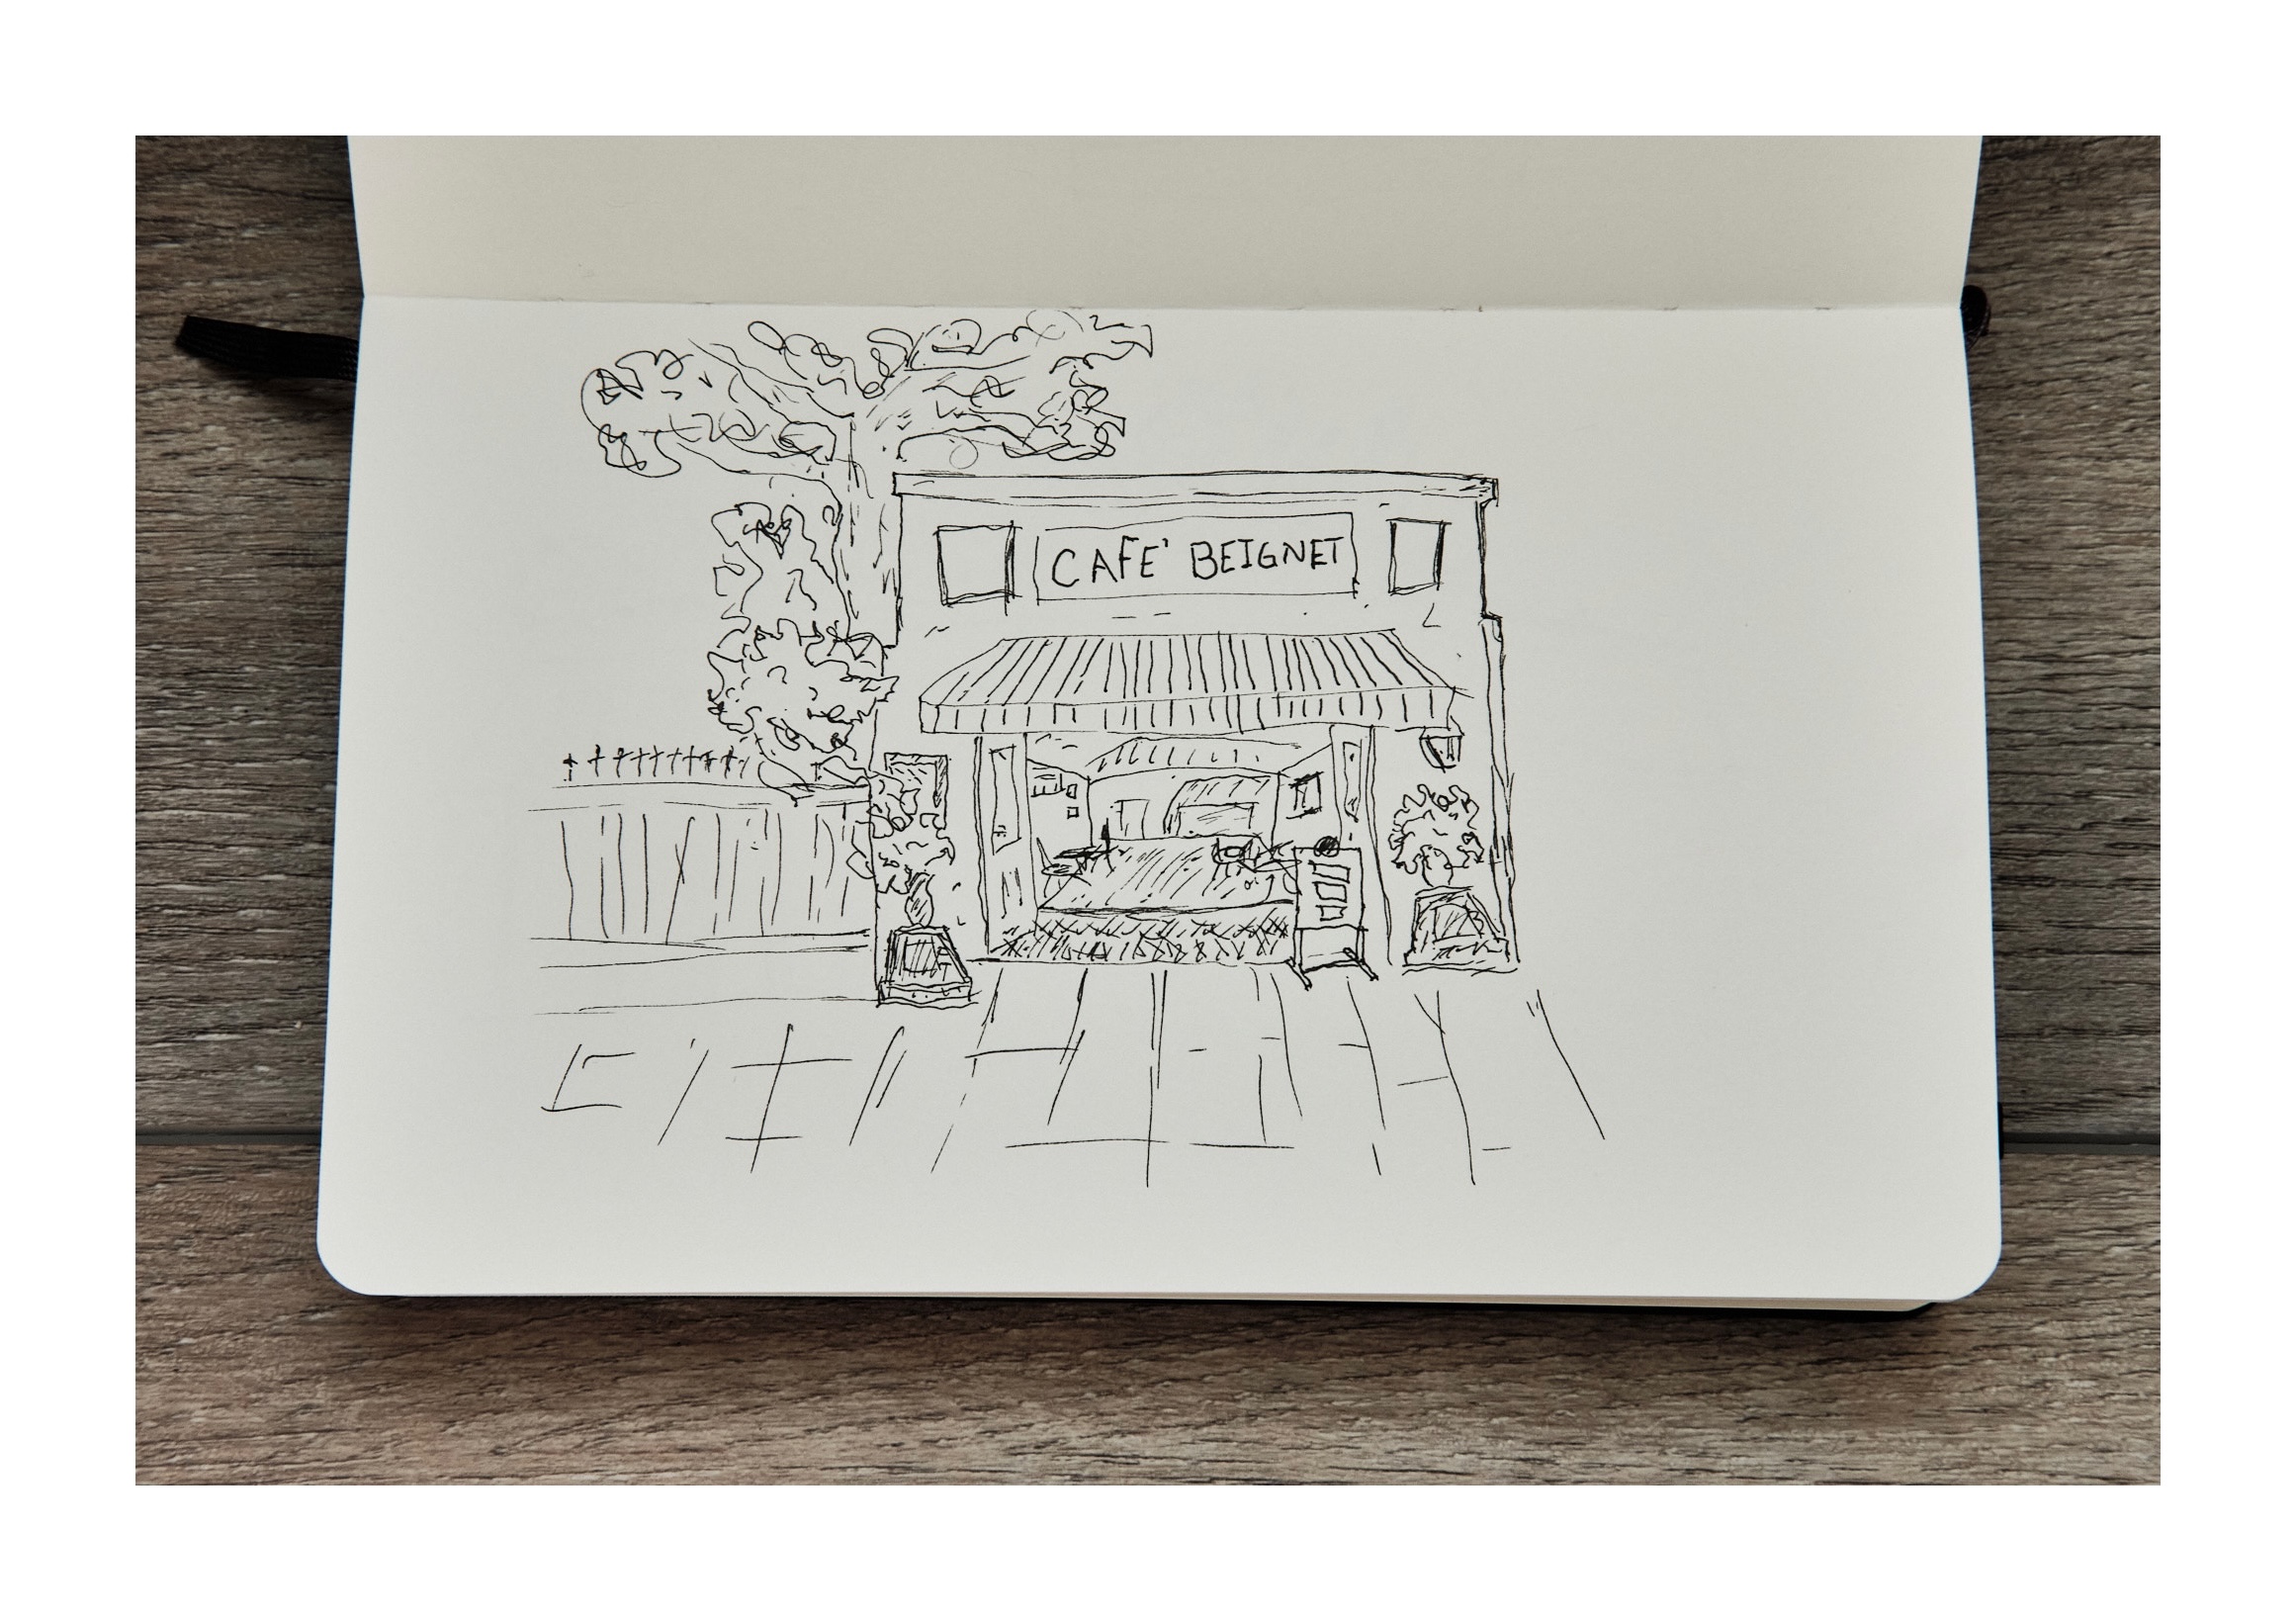 CAFE' BEIGNET